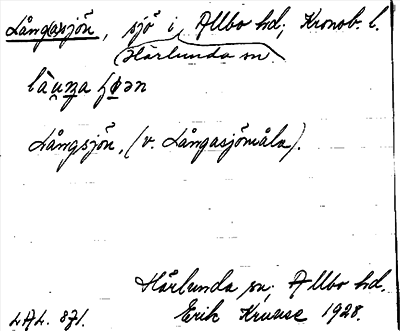 Långasjön, sjö i Allbo hd, Kronob. l.
(Härlunda sn.
Långsjön, (v. Långasjömåla).
Härlunda sn, Allbo hd.
LAL. 871. Erik Kruuse 1928.